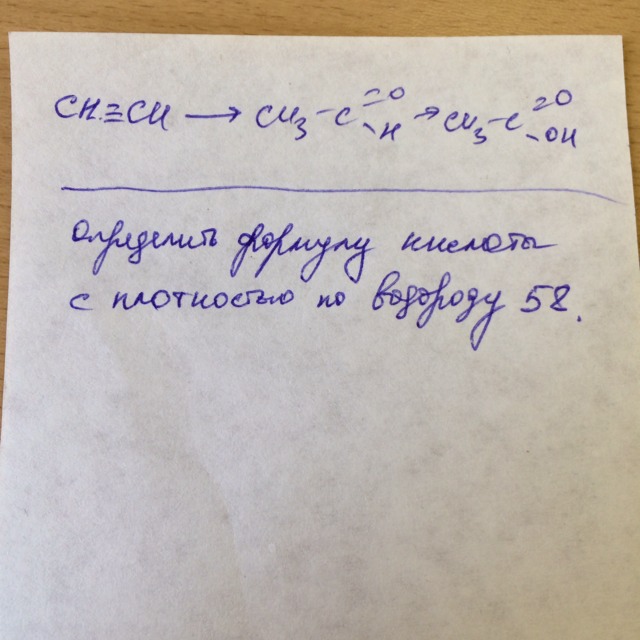 CH≡CH → CH₃-C=O-H → CH₃-C=O-OH
определить формулу кислоты
с плотностью по водороду 58.